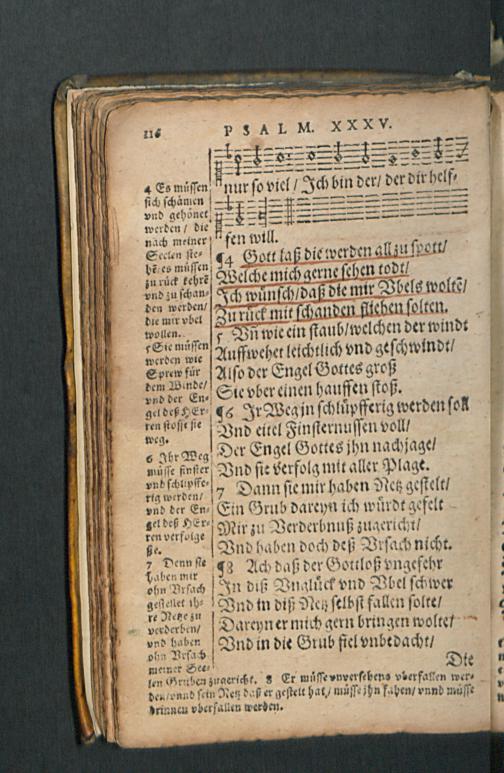 116
PSALM. XXXV.
nur so viel / Ich bin der / der dir helf-
fen will.
¶4 Gott laß die werden all zu spott /
Welche mich gerne sehen todt /
Ich wünsch / daß die mir Vbels woltē /
Zu rück mit schanden fliehen solten.
5 Vn̄ wie ein staub / welchen der windt
Auffwehet leichtlich vnd geschwindt /
Also der Engel Gottes groß
Sie vber einen hauffen stoß.
¶6 Ir Weg in schlüpfferig werden soll
Vnd eitel Finsternussen voll /
Der Engel Gottes jhn nachjage /
Vnd sie verfolg mit aller Plage.
7 Dann sie mir haben Netz gestelt /
Ein Grub dareyn ich würdt gefelt
Mir zu Verderbnuß zugericht /
Vnd haben doch deß Vrsach nicht.
¶8 Ach daß der Gottloß vngefehr
In diß Vnglück vnd Vbel schwer
Vnd in diß Netz selbst fallen solte /
Dareyn er mich gern bringen wolte /
Vnd in die Grub fiel vnbedacht /
Die
4 Es müssen
sich schämen
vnd gehönet
werden / die
nach meiner
Seelen ste-
hē: es müssen
zu rück kehrē
vnd zu schan-
den werden /
die mir vbel
wollen.
5 Sie müssen
werden wie
Sprew für
dem Winde /
vnd der En-
gel deß HEr-
ren stosse sie
weg.
6 Ihr Weg
müsse finster
vnd schlipffe-
rig werden /
vnd der En-
gel deß HEr-
ren verfolge
sie.
7 Denn sie
haben mir
ohn Vrsach
gestellet ih-
re Netze zu
verderben /
vnd haben
ohn Vrsach
meiner See-
len Gruben zugericht. 8 Er müsse vnversehens vberfallen wer-
den / vnnd sein Netz daß er gestelt hat / müsse jhn fahen / vnnd müsse
drinnen vberfallen werden.